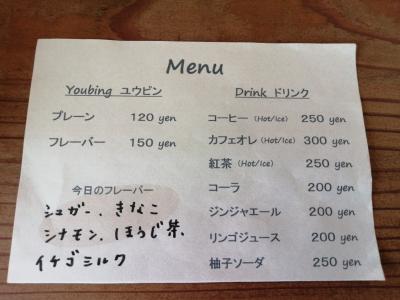 Menu
Youbing ユウビン
プレーン 120 yen
フレーバー 150 yen
今日のフレーバー
シュガー、きなこ
シナモン、ほうじ茶、
イチゴミルク
Drink ドリンク
コーヒー (Hot/Ice) 250 yen
カフェオレ (Hot/Ice) 300 yen
紅茶 (Hot/Ice) 250 yen
コーラ 200 yen
ジンジャエール 200 yen
リンゴジュース 200 yen
柚子ソーダ 250 yen